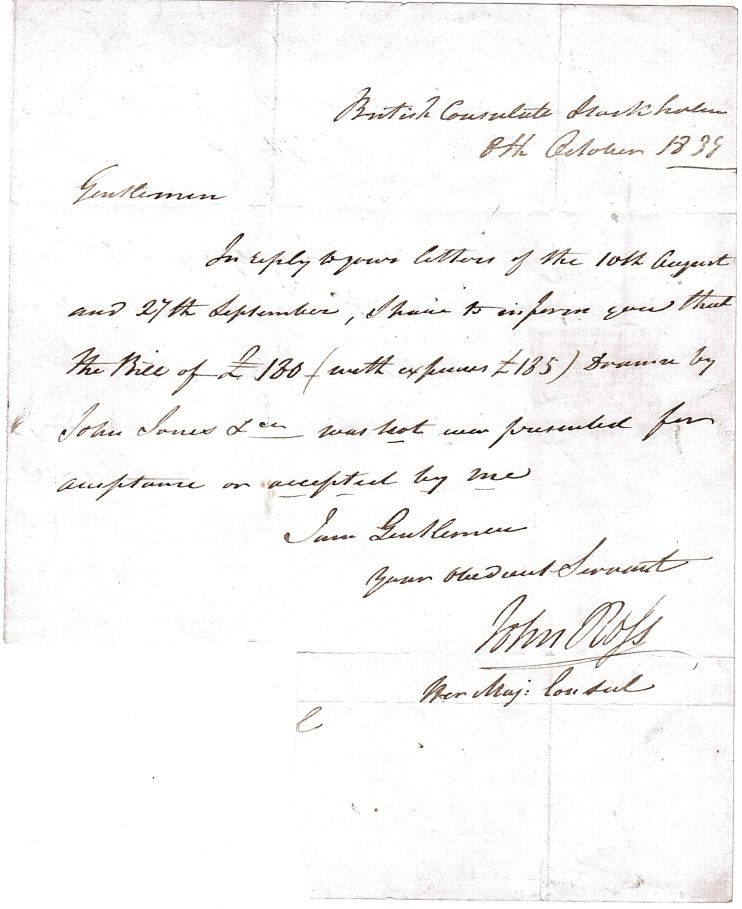 British Consulate Stockholm
8th October 1839
Gentlemen
In reply to your letters of the 10th August
and 27th September, I have to inform you that
the Bill of £ 130 (with expences £135) Drawn by
John Jones & co was not ever presented for
acceptance or accepted by me
I am Gentlemen
your obedient Servant
John Ross
Her Maj: Consul